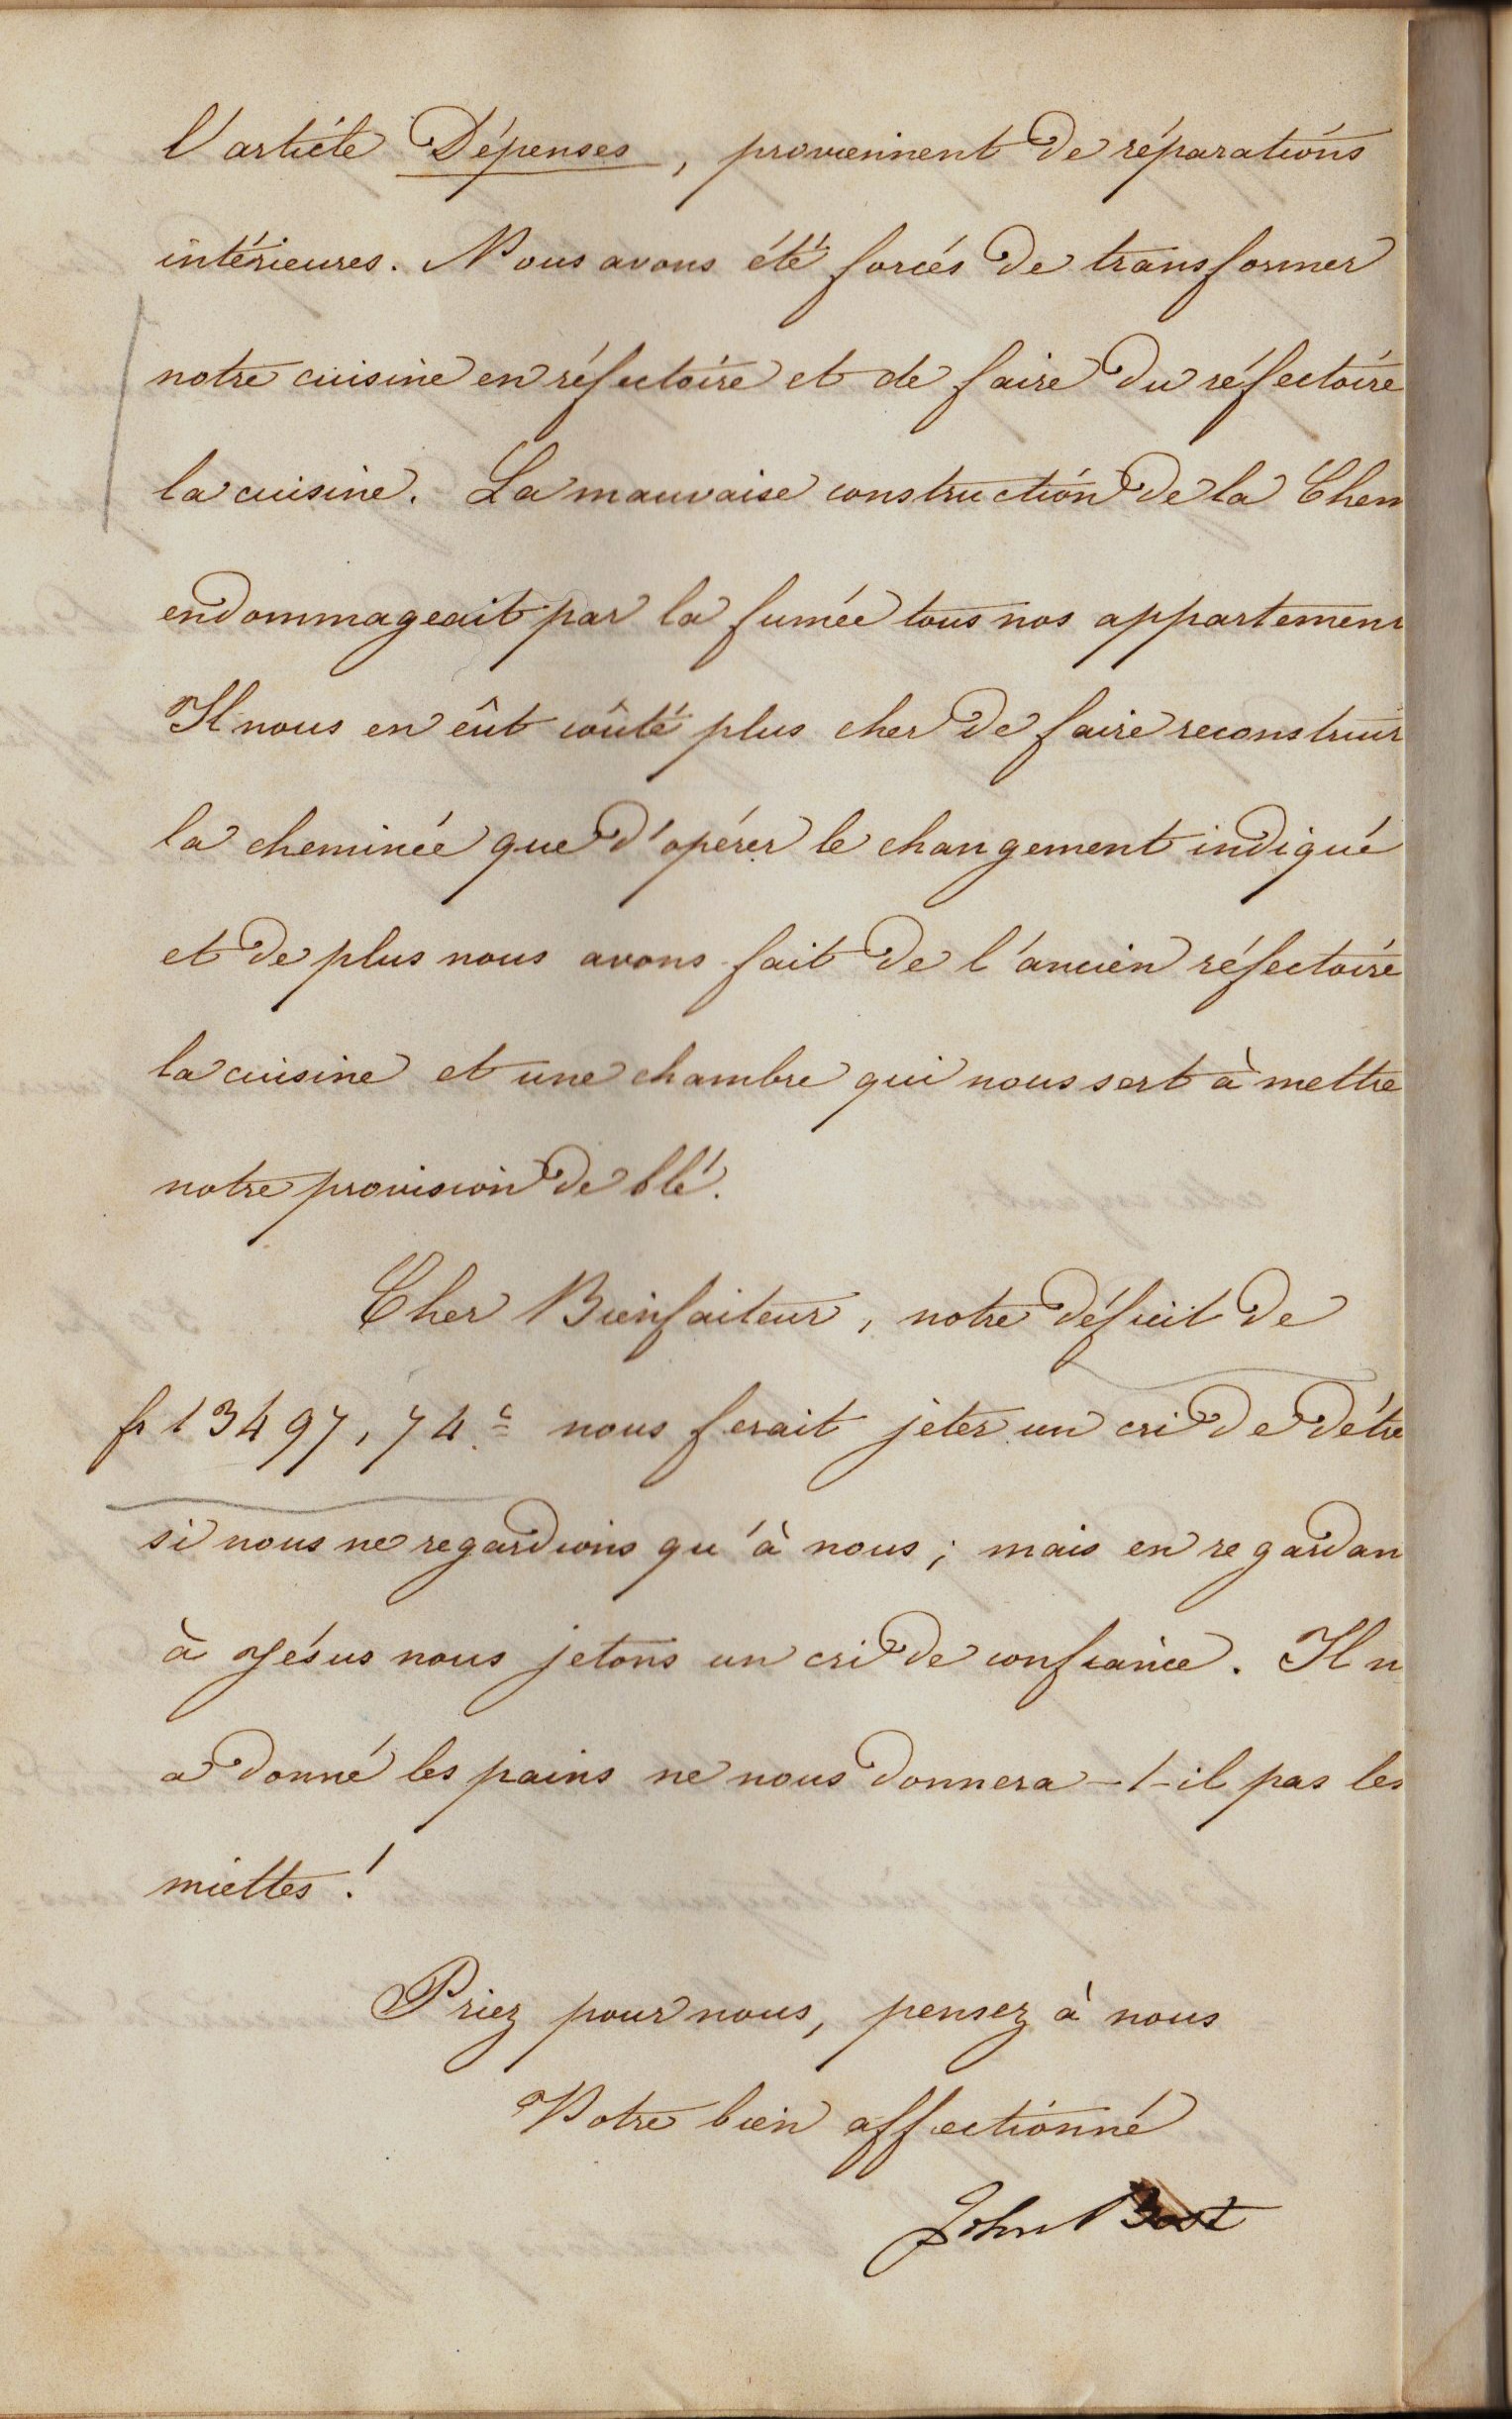 l'article Dépenses, proviennent de réparations
intérieures. Nous avons été forcés de transformer
notre cuisine en réfectoire et de faire du réfectoire
la cuisine. La mauvaise construction de la Chem
endommageait par la fumée tous nos appartemen
Il nous en eût coûté plus cher de faire reconstruir
la cheminée que d'opérer le changement indiqué
et de plus nous avons fait de l'ancien réfectoire
la cuisine et une chambre qui nous sert à mettre
notre provision de blé.
Cher Bienfaiteur, notre déficit de
fr 13497,74 c nous ferait jeter un cri de détre
si nous ne regardions qu'à nous; mais en regardan
à Jésus nous jetons un cri de confiance. Il n
a donné les pains ne nous donnera-t-il pas les
miettes!
Priez pour nous, pensez à nous
Votre bien affectionné
John Bost